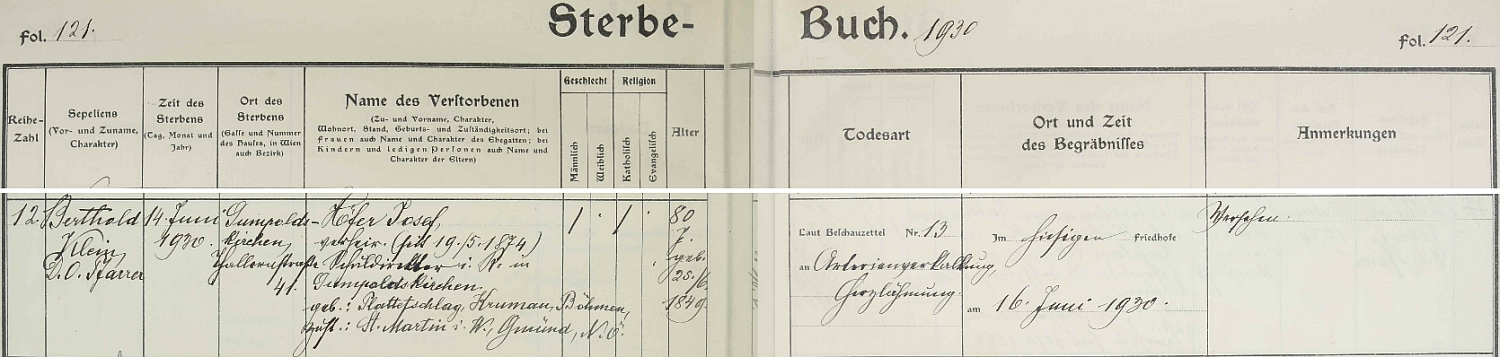 fol. 121.
Sterbe-
Buch. 1930
fol. 121.
Reihe-
Zahl
Sepeliens
(Vor- und Zuname,
Charakter)
Zeit des
Sterbens
(Tag, Monat und
Jahr)
Ort des
Sterbens
(Gasse und Nummer
des Hauses, in Wien
auch Bezirk)
Name des Verstorbenen
(Zu- und Vorname, Charakter,
Wohnort, Stand, Geburts- und Zuständigkeitsort; bei
Frauen auch Name und Charakter des Ehegatten; bei
Kindern und ledigen Personen auch Name und
Charakter der Eltern)
Geschlecht
Männlich
Weiblich
Religion
Katholisch
Evangelisch
Alter
Todesart
Ort und Zeit
des Begräbnisses
Anmerkungen
12.
Berthold
Klein,
D. O. Pfarrer
14. Juni
1930.
Gumpolds-
kirchen,
Thallernstraße
41.
Höfer Josef,
verheir. (seit 19./5. 1874)
Schuldirektor i. R. in
Gumpoldskirchen
geb.: Plattetschlag, Krumau, Böhmen,
zust.: St. Martin i. W., Gmünd, N. Ö.
1
1
80
J.
geb.
25./6.
1849.
Laut Beschauzettel Nr. 13
an Arterienverkalkung,
Herzlähmung.
Im hiesigen Friedhofe
am 16. Juni 1930.
Versehen.